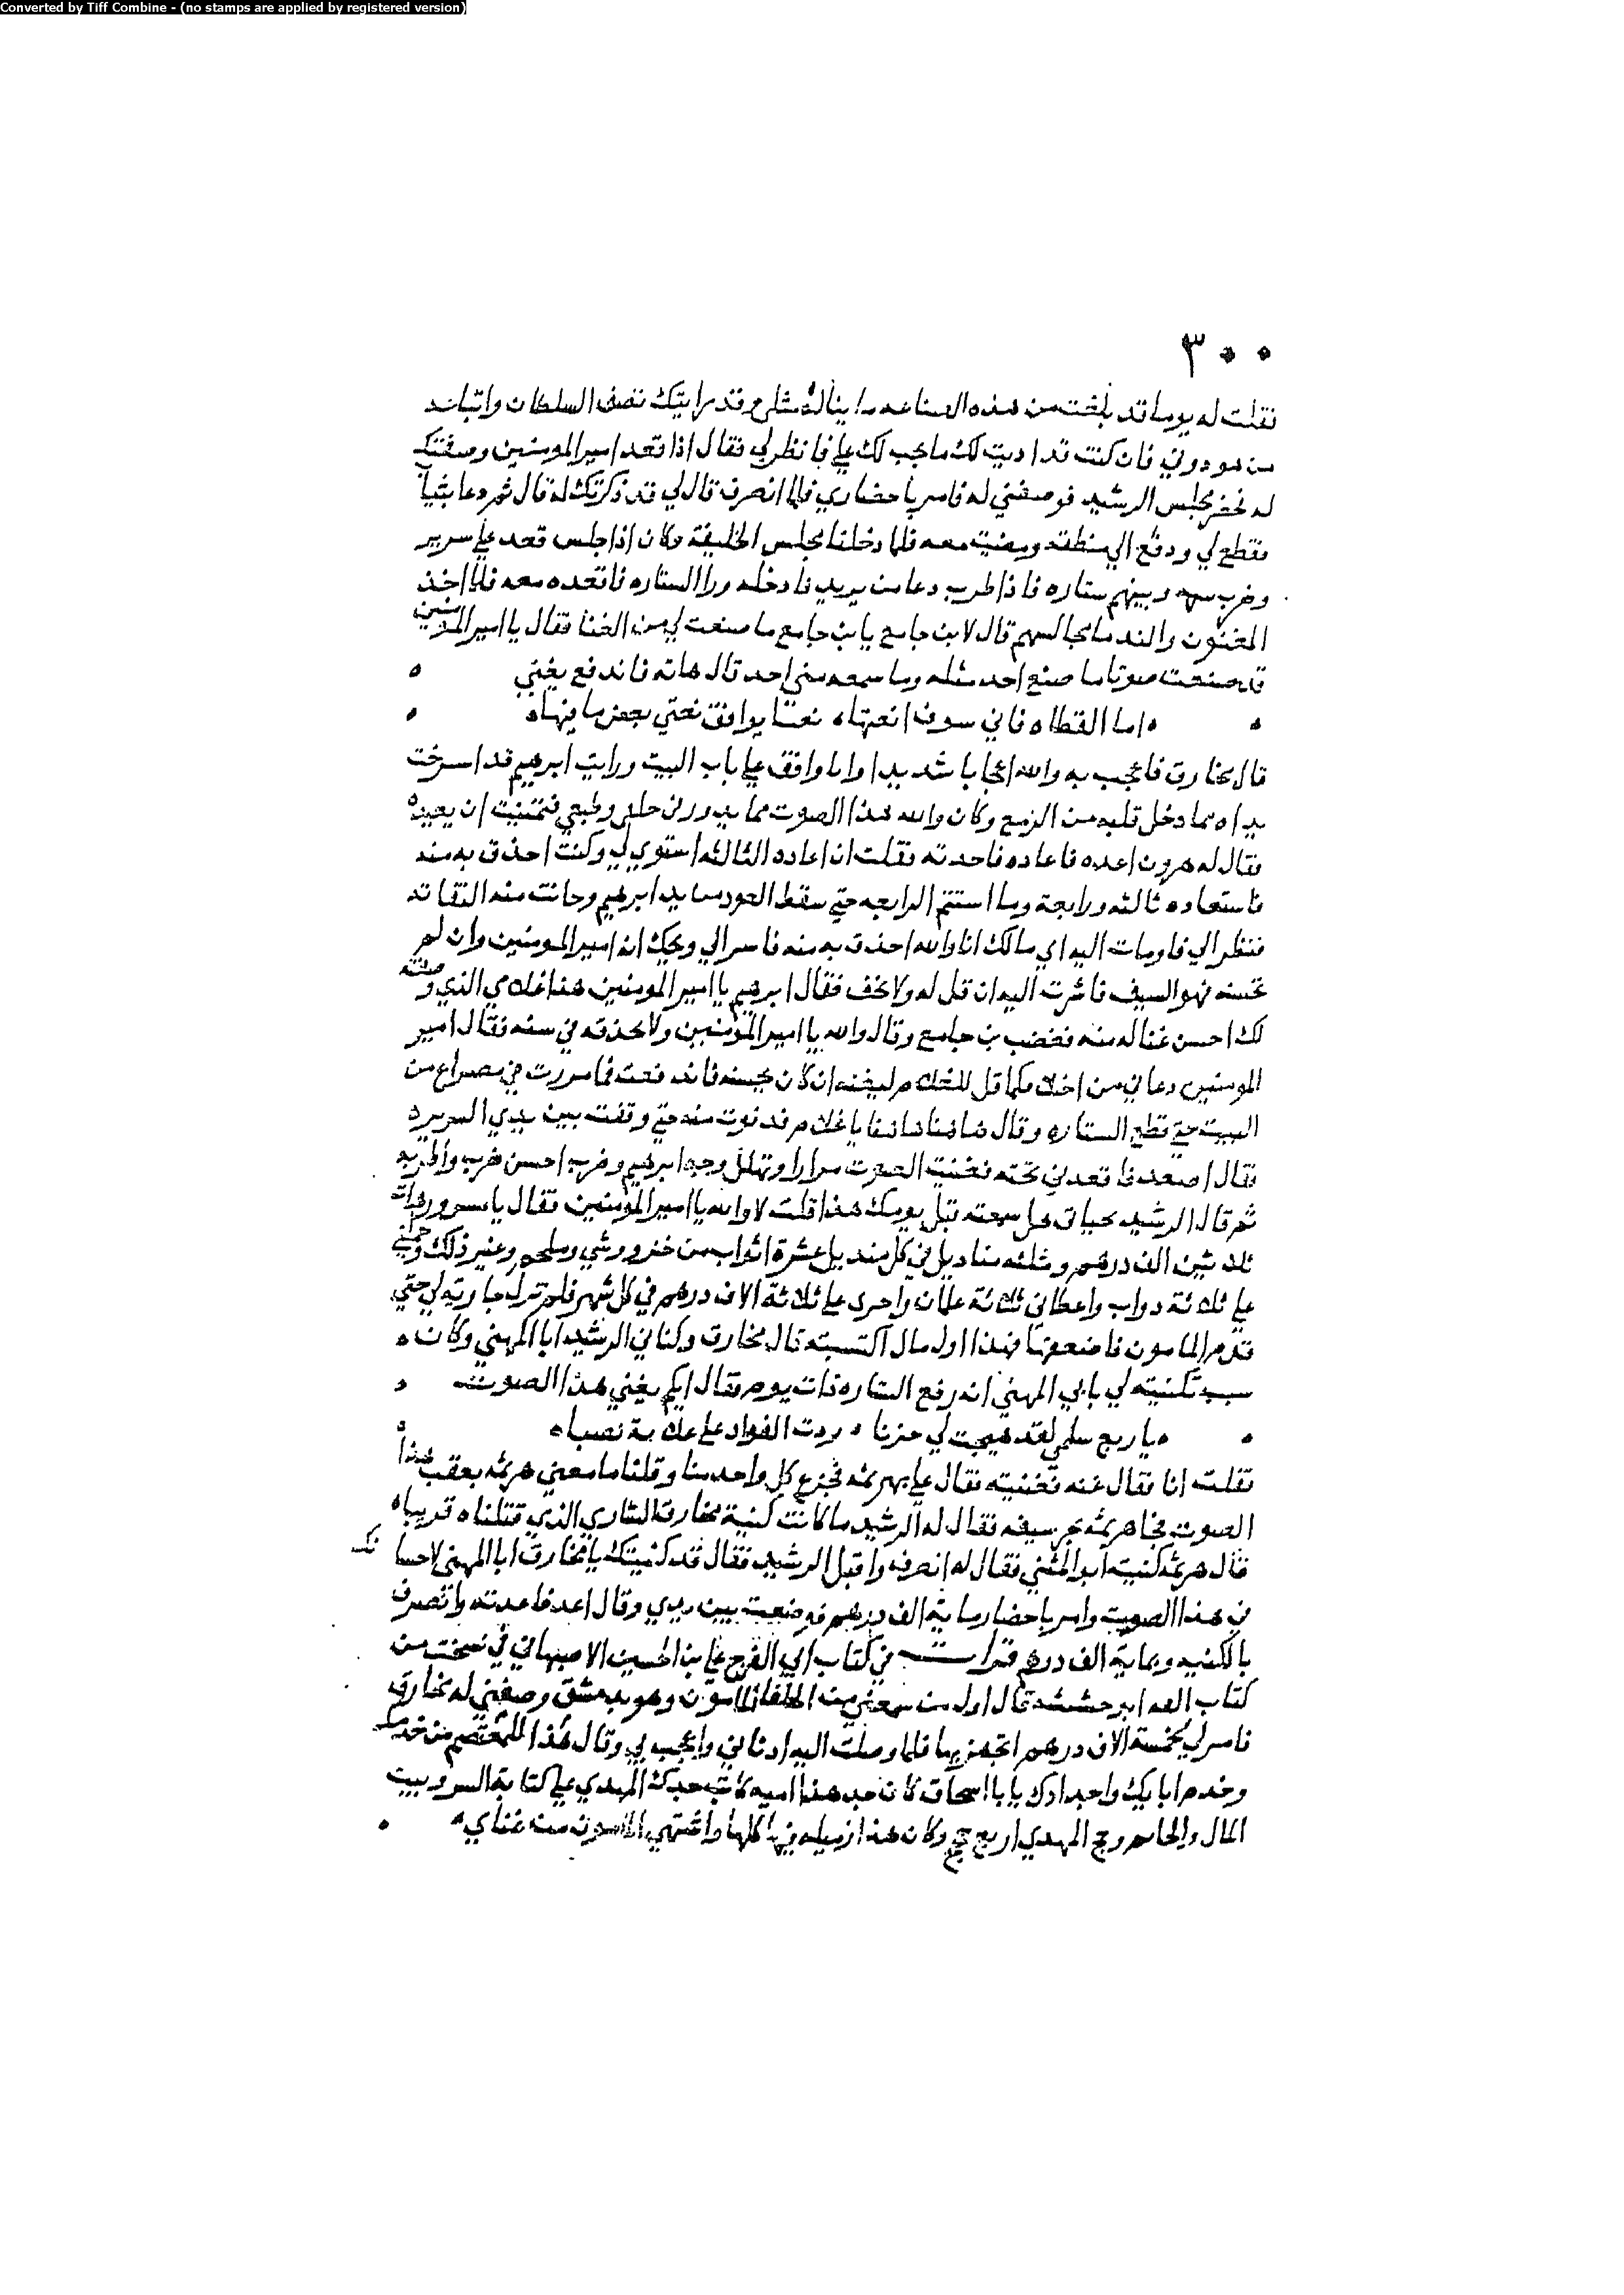 Converted by Tiff Combine - (no stamps are applied by registered version)
٣٠٠
فقلت له يوما قد بلغت من هذه الصناعه ما يناله مثلي وقد رايتك تصف السلطان واتباعه
من هو دوني فان كنت قد اديت لك ما يجب لك علي فانظر لي فقال اذا قعد امير المومنين وصفتك
له فحضر مجلس الرشيد فوصفني له فامر باحضاري فلما انصرف قال لي قد ذكرتك له قال ثم دعا بثياب
فقطع لي ودفع الي منطقه ومضيت معه فلما دخلنا مجلس الخليفة وكان اذا جلس قعد علي سرير
وضرب بينه وبينهم ستاره فاذا طرب دعا من يريد فادخله ورا الستاره فاقعده معه فلما اخذ
المغنون والندما مجالسهم قال لابن جامع يابن جامع ما صنعت لي من الغنا فقال يا امير المومنين
قد صنعت صوتا ما صنع احد مثله وما سمعه مني احد قال هاته فاندفع يغني
اما القطاه فاني سوف انعتها نعتا يوافق نعتي بعض ما فيها
قال مخارق فاعجب به والله اعجابا شديدا وانا واقف علي باب البيت ورايت ابرهيم قد استرخت
يداه مما دخل قلبه من الزمع وكان والله هذا الصوت مما يدور في حلقي وطبعي فتمنيت ان يعيده
فقال له هرون اعده فاعاده فاخذته فقلت ان اعاده الثالثه استوي لي وكنت احذق به منه
فاستعاده ثالثه ورابعة وما استتم الرابعه حتي سقط العود من يد ابرهيم وحانت منه التفاته
فنظر الي فاومات اليه اي مالك انا والله احذق به منه فاسر الي ويحك انه امير المومنين وان لم
تحسنه فهو السيف فاشرت اليه ان قل له ولا تخف فقال ابرهيم يا امير المومنين هذا غلامي الذي وصفته
لك احسن غنا له منه فغضب بن جامع وقال والله يا امير المومنين ولا يحذقه في سنه فقال امير
المومنين دعاني من اختلافكما قل للغلام ليغنه ان كان يحسنه فاندفعت فما مررت في مصراع من
البيت حتي قطع الستاره وقال هاهنا هاهنا يا غلام فدنوت منه حتي وقفت بين يدي السرير
فقال اصعد فاقعدني تحته فغنيت الصوت مرارا وتهلل وجه ابرهيم وضرب احسن ضرب واطربه
ثم قال الرشيد بحياتي هل سمعته قبل يومك هذا قلت لا والله يا امير المومنين فقال يا مسرور هات
ثلاثين الف درهم وثلثه مناديل في كل منديل عشرة اثواب من خز ووشي وملحم وغير ذلك وحملني
علي ثلاثة دواب واعطاني ثلاثة غلمان واجرى علي ثلاثة الاف درهم في كل شهر فلم تزل جاريه لي حتي
قدم المامون فاضعفها فهذا اول مال اكتسبته قال مخارق وكناني الرشيد ابا المهني وكان
سبب تكنيته لي بابي المهني انه رفع الستاره ذات يوم فقال ايكم يغني هذا الصوت
يا ربع سلمي لقد هيجت لي حزنا زدت الفواد علي علاته نصبا
فقلت انا فقال غنه فغنيته فقال علي بهرثمه فجزع كل واحد منا وقلنا ما معني هرثمه بعقب هذا
الصوت فجا هرثمه يجر سيفه فقال له الرشيد ما كانت كنية مخارق الشاري الذي قتلناه قريبا
قال هرثمه كنيته ابو المهني فقال له انصرف واقبل الرشيد فقال قد كنيتك يا مخارق ابا المهني لاحسانك
في هذا الصوت وامر باحضار ماية الف درهم فوضعت بين يدي وقال اعد فاعدته وانصرف
بالكنيه وبماية الف درهم قرات في كتاب ابي الفرج علي بن الحسين الاصبهاني في نسخت من
كتاب ابو حششه قال اول من سمعني من الخلفا المامون وهو بدمشق وصفني له مخارق
فامر لي بخمسة الاف درهم اتجهز بها فلما وصلت اليه ادناني واعجب بي وقال هذا للمعتصم من خدمك
وخدم ابايك واجدادك يابا اسحاق كان جد هذا اميه كاتب جدك المهدي علي كتابة السر وبيت
المال والخاتم وحج المهدي اربع حجج وكان هذا زميله فيها كلها واشتهي المامون من غناي